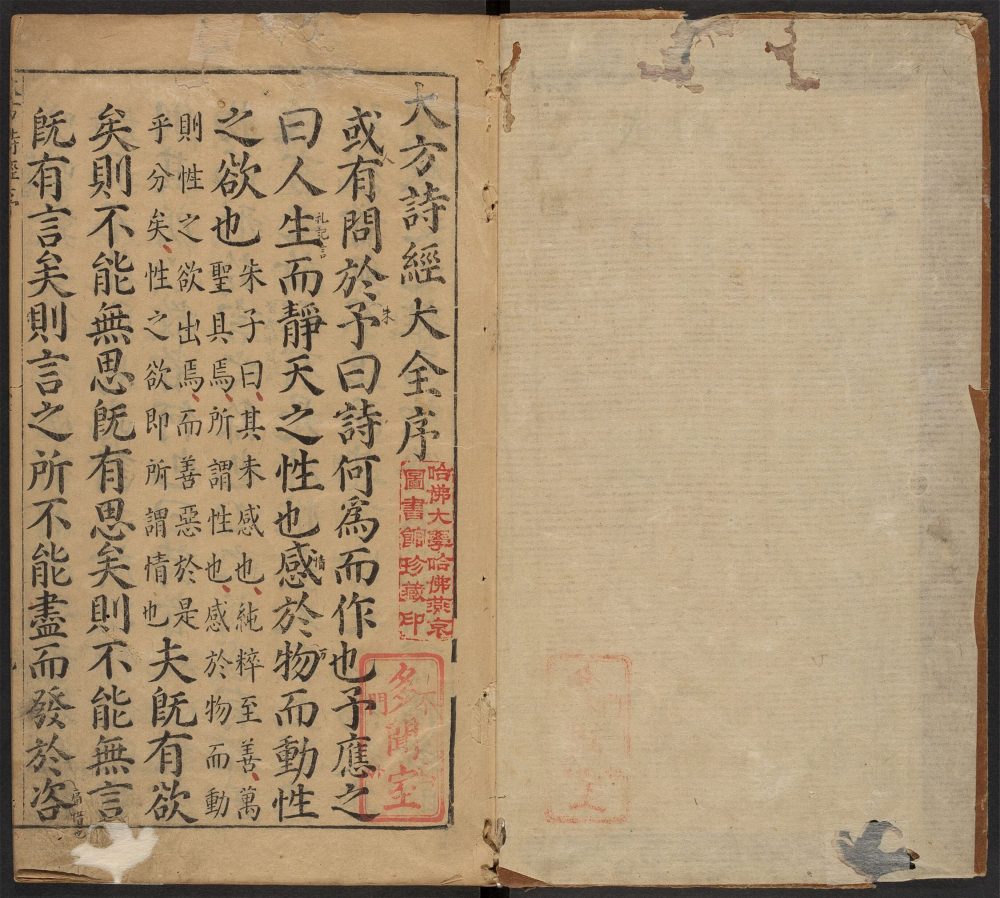 大方詩經大全序
或有問於予曰詩何爲而作也予應之
朱
曰人生而靜天之性也感於物而動性
礼記言
情
之欲也
朱子曰其未感也純粹至善萬
聖具焉所謂性也感於物而動
則性之欲出焉而善惡於是
乎分矣性之欲即所謂情也
夫旣有欲
矣則不能無思旣有思矣則不能無言
旣有言矣則言之所不能盡而發於咨
哈佛大學哈佛燕京
圖書館珍藏印
多聞室